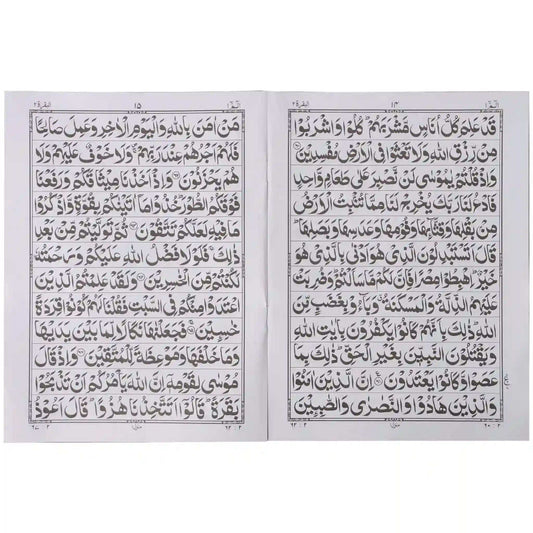 الٓمّٓ ١
١٤
البقرة ٢
قَدْ عَلِمَ كُلُّ اُنَاسٍ مَّشْرَبَهُمْ ؕ كُلُوْا وَاشْرَبُوْا
مِنْ رِّزْقِ اللّٰهِ وَلَا تَعْثَوْا فِی الْاَرْضِ مُفْسِدِیْنَ
وَاِذْ قُلْتُمْ یٰمُوْسٰی لَنْ نَّصْبِرَ عَلٰی طَعَامٍ وَّاحِدٍ
فَادْعُ لَنَا رَبَّكَ یُخْرِجْ لَنَا مِمَّا تُنْۢبِتُ الْاَرْضُ
مِنْۢ بَقْلِهَا وَقِثَّآئِهَا وَفُوْمِهَا وَعَدَسِهَا وَبَصَلِهَا ؕ
قَالَ اَتَسْتَبْدِلُوْنَ الَّذِیْ هُوَ اَدْنٰی بِالَّذِیْ هُوَ
خَیْرٌ ؕ اِهْبِطُوْا مِصْرًا فَاِنَّ لَكُمْ مَّا سَاَلْتُمْ ؕ وَضُرِبَتْ
عَلَیْهِمُ الذِّلَّةُ وَالْمَسْكَنَةُ ۗ وَبَآءُوْ بِغَضَبٍ مِّنَ
اللّٰهِ ؕ ذٰلِكَ بِاَنَّهُمْ كَانُوْا یَكْفُرُوْنَ بِاٰیٰتِ اللّٰهِ
وَیَقْتُلُوْنَ النَّبِیّٖنَ بِغَیْرِ الْحَقِّ ؕ ذٰلِكَ بِمَا
عَصَوْا وَّكَانُوْا یَعْتَدُوْنَ اِنَّ الَّذِیْنَ اٰمَنُوْا
وَالَّذِیْنَ هَادُوْا وَالنَّصٰرٰی وَالصّٰبِـِٕیْنَ
٢ : ٦٠
منزل
٢ : ٦٢
الٓمّٓ ١
١٥
البقرة ٢
مَنْ اٰمَنَ بِاللّٰهِ وَالْیَوْمِ الْاٰخِرِ وَعَمِلَ صَالِحًا
فَلَهُمْ اَجْرُهُمْ عِنْدَ رَبِّهِمْ ۪ وَلَا خَوْفٌ عَلَیْهِمْ وَلَا
هُمْ یَحْزَنُوْنَ وَاِذْ اَخَذْنَا مِیْثَاقَكُمْ وَرَفَعْنَا
فَوْقَكُمُ الطُّوْرَ ؕ خُذُوْا مَآ اٰتَیْنٰكُمْ بِقُوَّةٍ وَّاذْكُرُوْا
مَا فِیْهِ لَعَلَّكُمْ تَتَّقُوْنَ ثُمَّ تَوَلَّیْتُمْ مِّنْۢ بَعْدِ
ذٰلِكَ ۚ فَلَوْلَا فَضْلُ اللّٰهِ عَلَیْكُمْ وَرَحْمَتُهٗ
لَكُنْتُمْ مِّنَ الْخٰسِرِیْنَ وَلَقَدْ عَلِمْتُمُ الَّذِیْنَ
اعْتَدَوْا مِنْكُمْ فِی السَّبْتِ فَقُلْنَا لَهُمْ كُوْنُوْا قِرَدَةً
خٰسِـِٕیْنَ فَجَعَلْنٰهَا نَكَالًا لِّمَا بَیْنَ یَدَیْهَا
وَمَا خَلْفَهَا وَمَوْعِظَةً لِّلْمُتَّقِیْنَ وَاِذْ قَالَ
مُوْسٰی لِقَوْمِهٖۤ اِنَّ اللّٰهَ یَاْمُرُكُمْ اَنْ تَذْبَحُوْا
بَقَرَةً ؕ قَالُوْۤا اَتَتَّخِذُنَا هُزُوًا ؕ قَالَ اَعُوْذُ
٢ : ٦٢
منزل
٢ : ٦٧